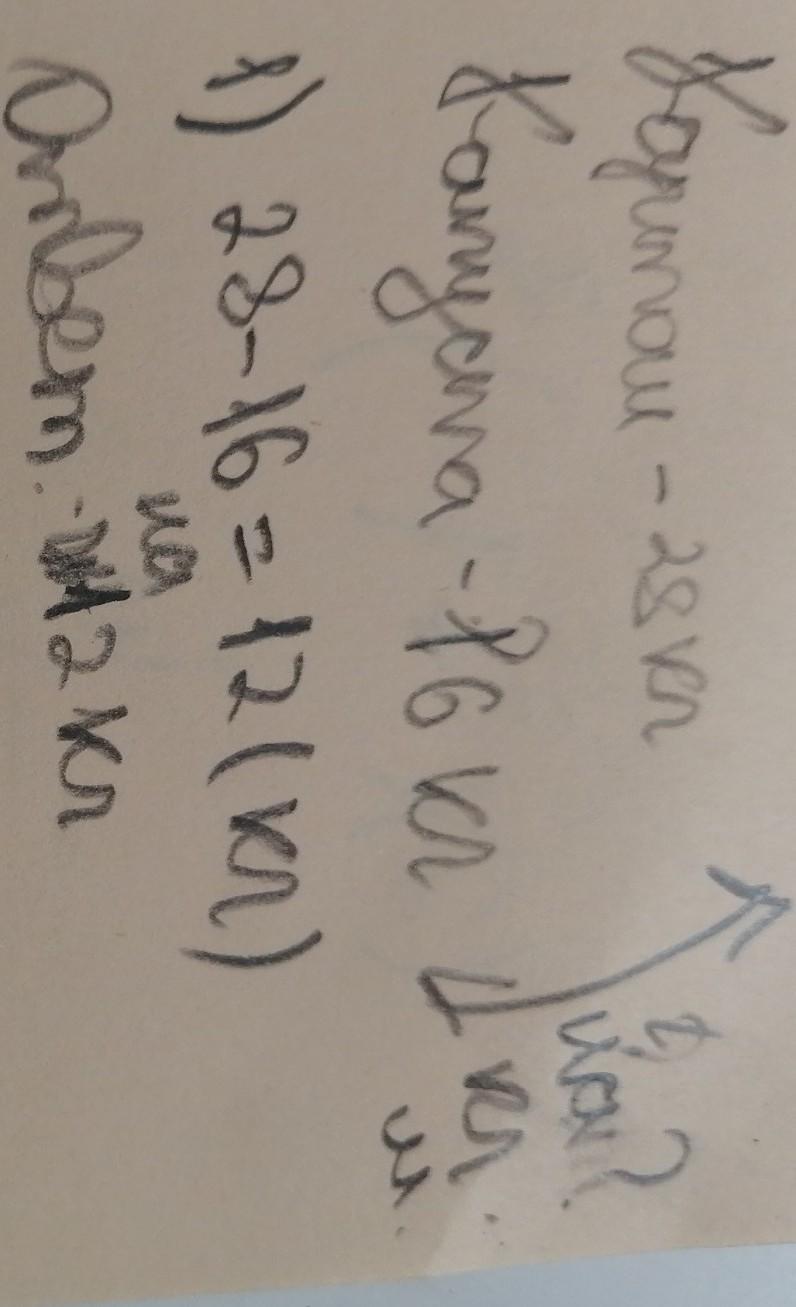 Картош - 28 кг
Капуста - 16 кг
на ?
кг
м.
1) 28-16=12(кг)
на
Ответ. 12 кг